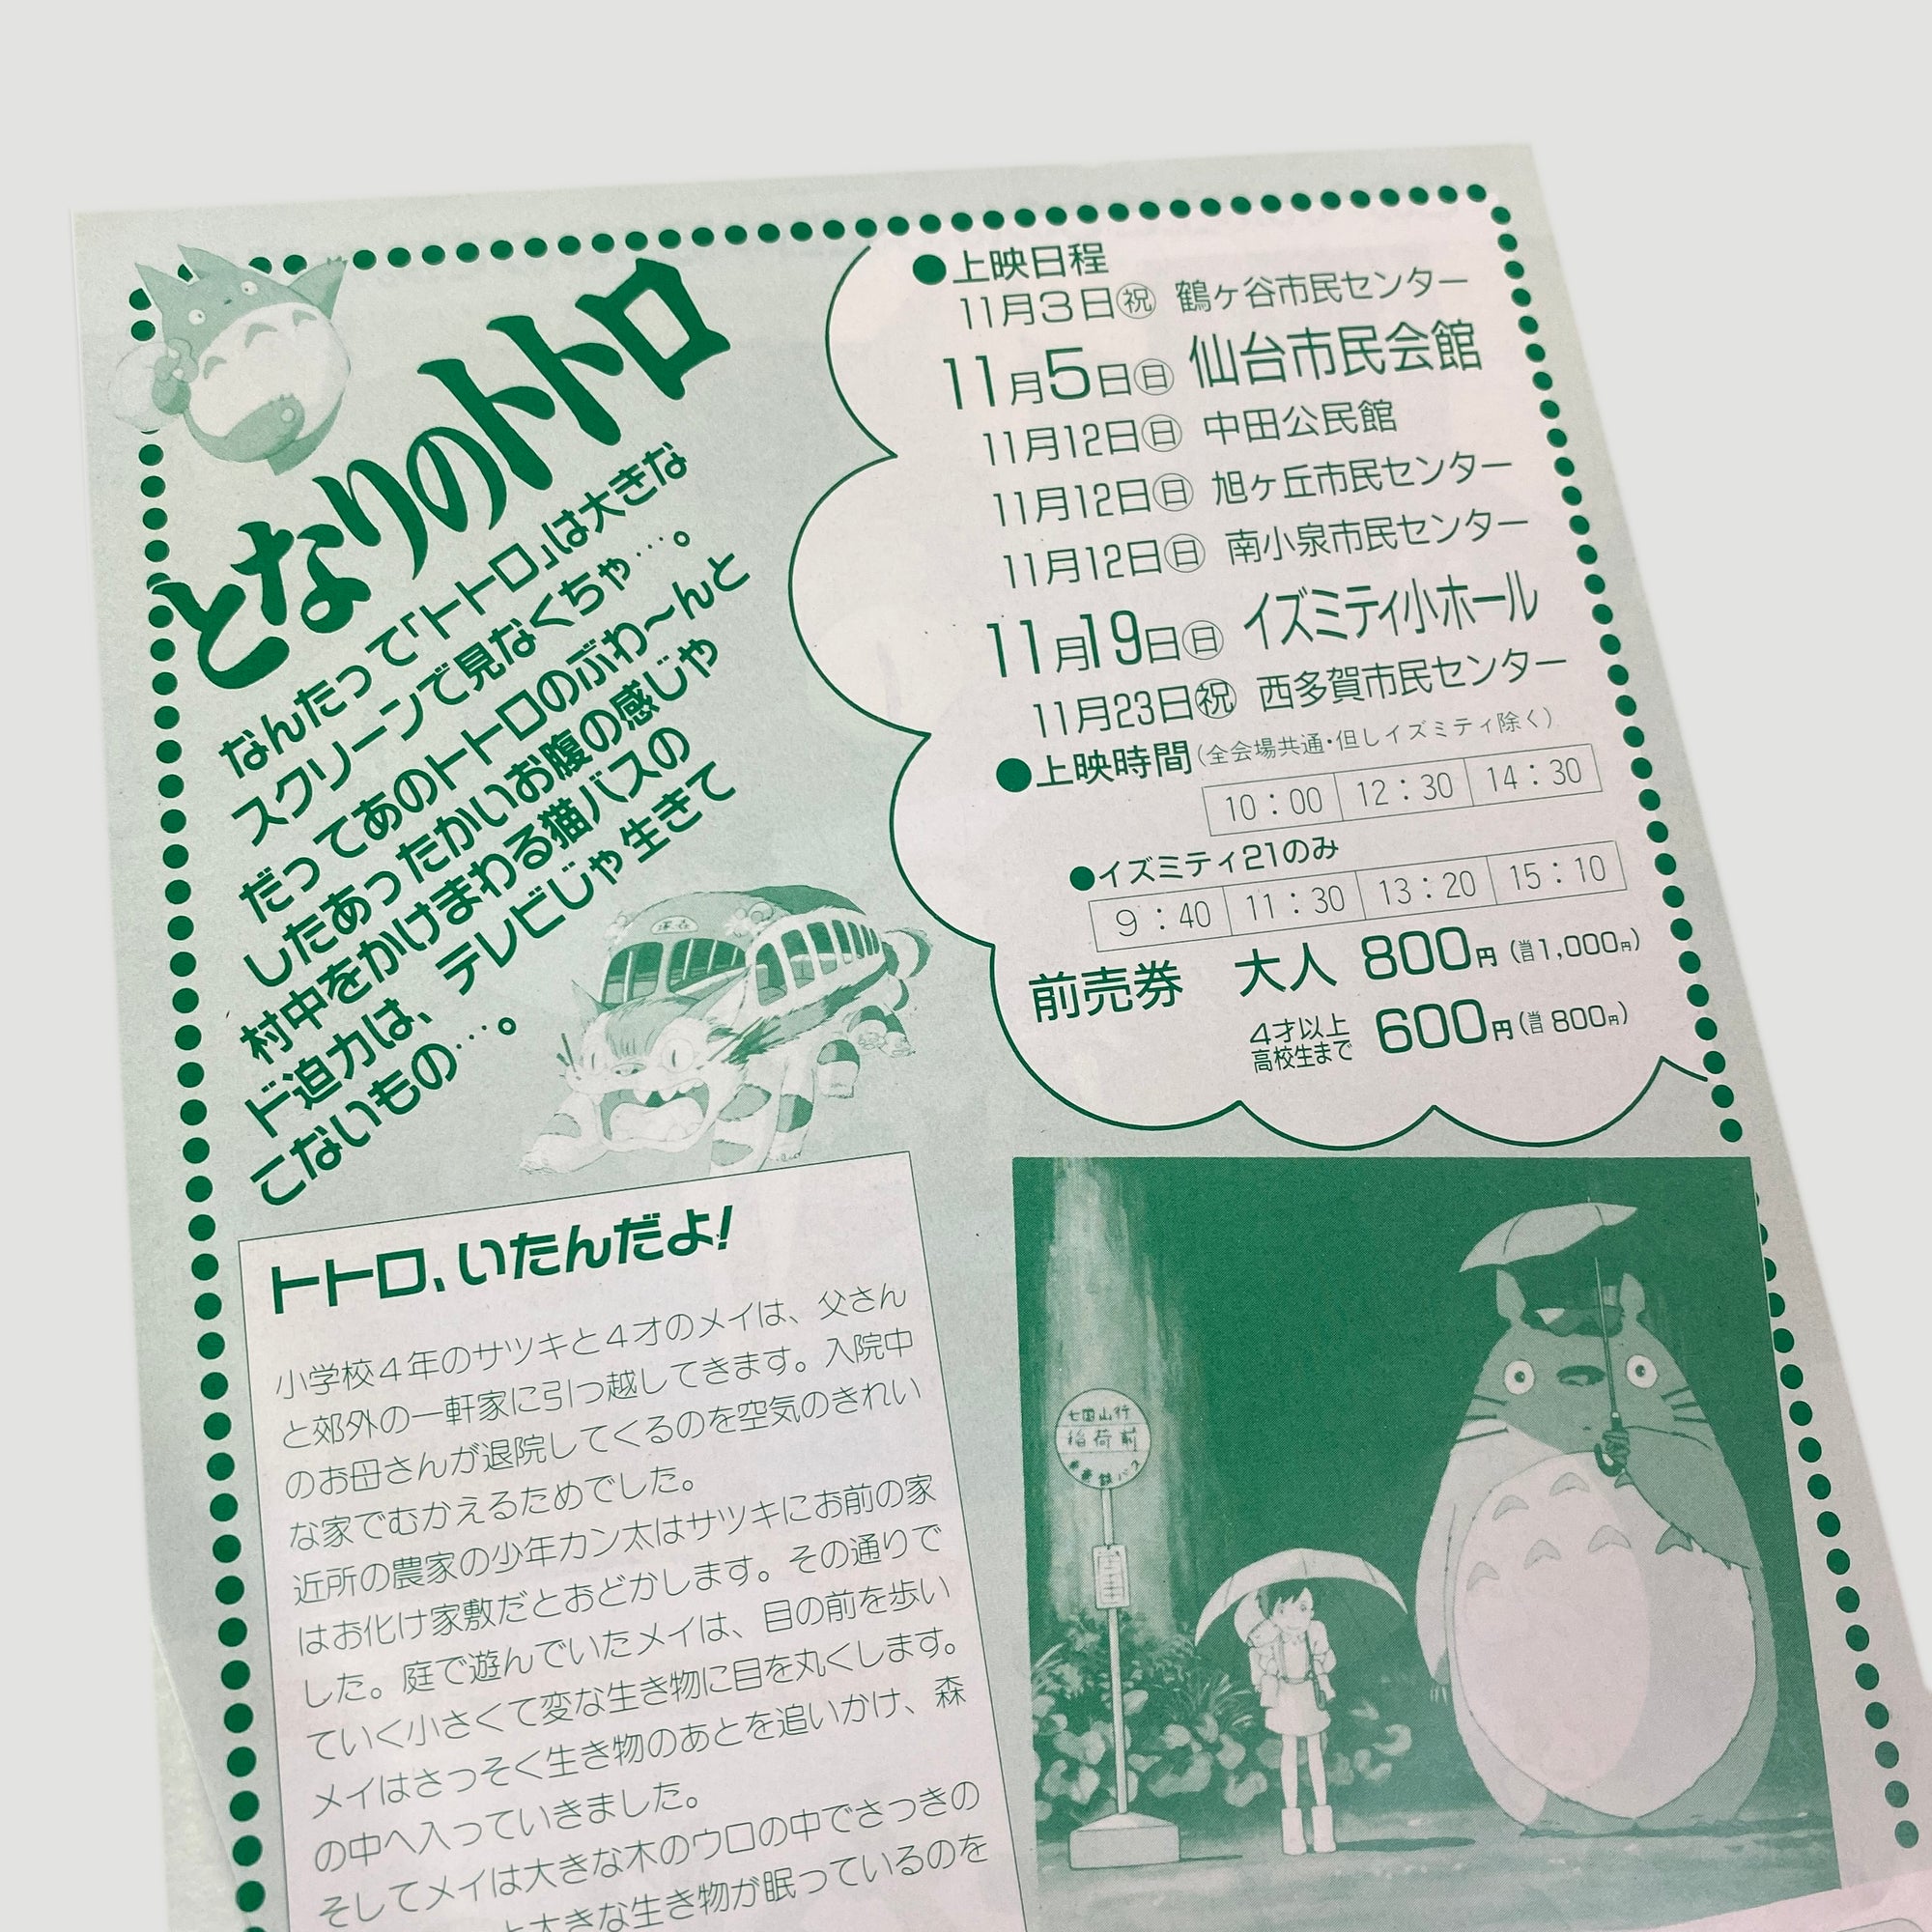 となりのトトロ
なんたって「トトロ」は大きな
スクリーンで見なくちゃ…。
だってあのトトロのぶわ〜んと
したあったかいお腹の感じや
村中をかけまわる猫バスの
ド迫力は、テレビじゃ生きて
こないもの…。
●上映日程
11月3日㊗ 鶴ヶ谷市民センター
11月5日㊐ 仙台市民会館
11月12日㊐ 中田公民館
11月12日㊐ 旭ヶ丘市民センター
11月12日㊐ 南小泉市民センター
11月19日㊐ イズミティ小ホール
11月23日㊗ 西多賀市民センター
●上映時間(全会場共通・但しイズミティ除く)
10：00 12：30 14：30
●イズミティ21のみ
9：40 11：30 13：20 15：10
前売券 大人 800円(当1,000円)
4才以上
高校生まで 600円(当800円)
トトロ、いたんだよ!
小学校4年のサツキと4才のメイは、父さん
と郊外の一軒家に引っ越してきます。入院中
のお母さんが退院してくるのを空気のきれい
な家でむかえるためでした。
近所の農家の少年カン太はサツキにお前の家
はお化け家敷だとおどかします。その通りで
した。庭で遊んでいたメイは、目の前を歩い
ていく小さくて変な生き物に目を丸くします。
メイはさっそく生き物のあとを追いかけ、森
の中へ入っていきました。
そしてメイは大きな木のウロの中でさつきの
大きな生き物が眠っているのを
七国山行
稲荷前